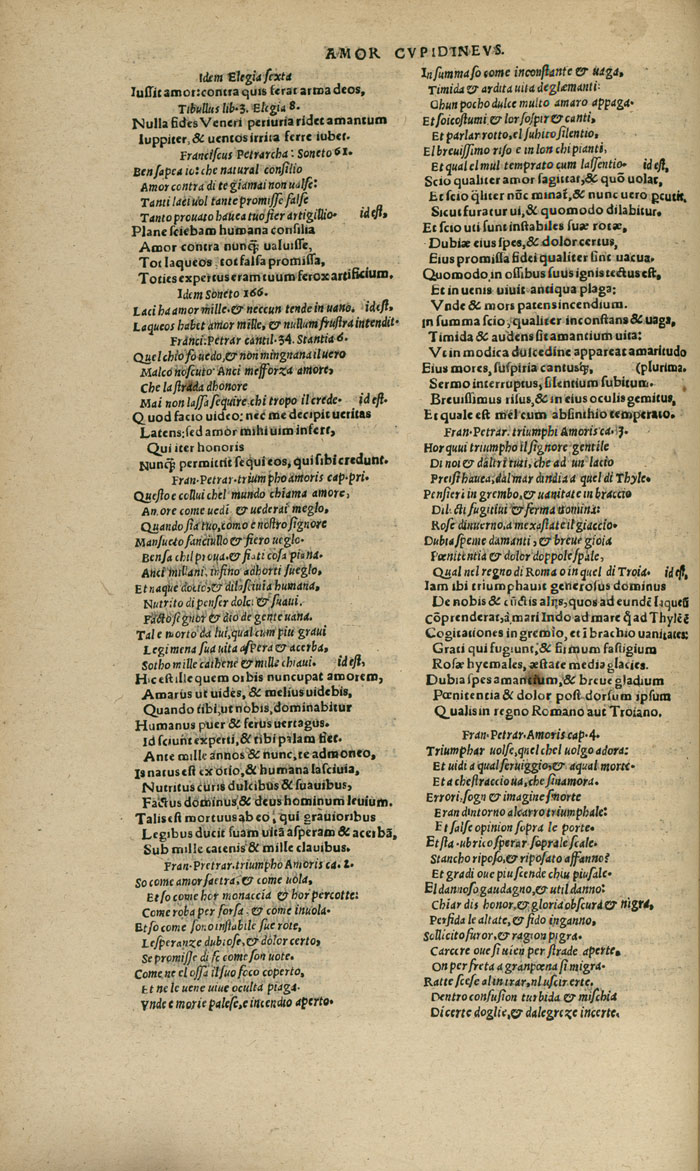 AMOR CVPIDINEVS.
Idem Elegia sexta
Iussit amor: contra quis ferat arma deos,
Tibullus lib. 3. Elegia 8.
Nulla fides Veneri periuria ridet amantum
Iuppiter, & uentos irrita ferre iubet.
Franciscus Petrarcha: Soneto 61.
Ben sapea io: che natural consilio
Amor contra di te giamai non ualse:
Tanti laci uol tante promisse false
Tanto prouato hauea tuo fier artigillio. id est,
Plane sciebam humana consilia
Amor contra nunq̃ ualuisse,
Tot laqueos, tot falsa promissa,
Toties expertus eram tuum ferox artificium.
Idem Soneto 166.
Laci ha amor mille, & neccun tende in uano. id est.
Laqueos habet amor mille, & nullum frustra intendit.
Franci. Petrar cantil. 34. Stantia 6.
Quel chio fo uedo, & non mingnana il uero
Malconosciuto: Anci mefforza amore,
Che la strada dhonore
Mai non lassa sequire chi tropo il crede. id est.
Quod facio uideo: nec me decipit ueritas
Latens: sed amor mihi uim infert,
Qui iter honoris
Nunq̃ permittit sequi eos, qui sibi credunt.
Fran. Petrar. triumpho amoris cap. pri.
Questo e collui chel mundo chiama amore,
Amore come uedi & uederai meglo.
Quando sia tuo, como e nostro signore
Mansueto fanciullo & fiero ueglo.
Ben sa chil proua, & fiati cosa piana.
Anci millani, infino adhorti sueglo.
Et naque dotio, & di lasciuia humana,
Nutrito di penser dolci & suaui.
Facto signor & dio de gente uana.
Tal e morto da lui, qual cum piu graui
Legi mena sua uita aspera & acerba,
Sotho mille cathene & mille chiaui. id est,
Hic est ille quem orbis nuncupat amorem,
Amarus ut uides, & melius uidebis,
Quando tibi, ut nobis, dominabitur
Humanus puer & ferus uertagus.
Id sciunt experti, & tibi palam fiet.
Ante mille annos & nunc, te admoneo,
Is natus est ex otio, & humana lasciuia,
Nutritus curis dulcibus & suauibus,
Factus dominus & deus hominum leuium.
Talis est mortuus ab eo, qui grauioribus
Legibus ducit suam uitā asperam & acerbā,
Sub mille catenis & mille clauibus.
Fran. Pretrar. triumpho Amoris ca. 2.
So come amor saetra, & come uola,
Et so come hor monaccia & hor percotte:
Come roba per forsa, & come inuola.
Et so come sono instabile sue rote,
Le speranze dubiose, & dolor certo,
Se promisse di fe come son uote.
Come ne el ossa il suo foco coperto,
Et ne le uene uiue oculta piaga.
Vnde e morte palese, e incendio aperto.
In summa so come inconstante & uaga,
Timida & ardita uita degl amanti:
Chun pocho dulce multo amaro appaga.
Et so i costumi & lor sospir & canti,
Et parlar rotto, el subito silentio,
El breuissimo riso e in lon chi pianti,
Et qual el mul temprato cum lassentio. id est,
Scio qualiter amor sagittat, & quō uolat,
Et scio q̃liter nūc minat̃, & nunc uero pcutit,
Sicut furatur ui, & quomodo dilabitur.
Et scio uti sunt instabiles suæ rotæ,
Dubiæ eius spes, & dolor certus,
Eius promissa fidei qualiter sint uacua.
Quomodo, in ossibus suus ignis tectus est,
Et in uenis uiuit antiqua plaga:
Vnde & mors patens incendium.
In summa scio, qualiter inconstans & uaga,
Timida & audens sit amantium uita:
Vt in modica dulcedine appareat amaritudo
Eius mores, suspiria cantusq̃, (plurima.
Sermo interruptus, silentium subitum.
Breuissimus risus, & in eius oculis gemitus,
Et quale est mel cum absinthio temperato.
Fran. Petrar. triumphi Amoris ca. 3.
Hor qui triumpho il signore gentile
Di noi & daltri tuti, che ad un lacio
Presi hauea, dal mar dindia a quel di Thyle.
Pensieri in grembo, & uanitate in braccio
Dilecti fugitiui & ferma domina:
Rose dinuerno, a mexa state il giaccio.
Dubia speme damanti, & breue gioia
Pœnitentia & dolor doppo le spale,
Qual nel regno di Roma o in quel di Troia. id est,
Iam ibi triumphauit generosus dominus
De nobis & cūctis alijs, quos ad eundē laqueū
Cōprenderat, a mari Indo ad mare q̃ ad Thylēē
Cogitationes in gremio, et ī brachio uanitates:
Grati qui fugiunt, & firmum fastigium
Rosæ hyemales, æstate media glacies.
Dubia spes amantium, & breue gladium
Pœnitentia & dolor post dorsum ipsum
Qualis in regno Romano aut Troiano.
Fran. Petrar. Amoris cap. 4.
Triumphar uolse, quel chel uolgo adora:
Et uidi a qual seruiggio, & a qual morte.
Et a che straccio ua, che sinamora.
Errori, sogn & imagine smorte
Eran dintorno al carro triumphale:
Et false opinion sopra le porte.
Et sta lubrico sperar sopra le scale.
Stancho riposo, & riposato affanno?
Et gradi oue piu scende chiu piu sale.
El dannoso guadagno, & util danno:
Chiar dis honor, & gloria obscura & nigra,
Perfida le altate, & fido inganno,
Sollicito furor, & ragion pigra.
Carcere oue si uien per strade aperte,
On per freta a gran pœna si migra.
Ratte scese al intrar, nl uscir erte.
Dentro confusion turbida & mischia
Di certe doglie, & dalegreze incerte.